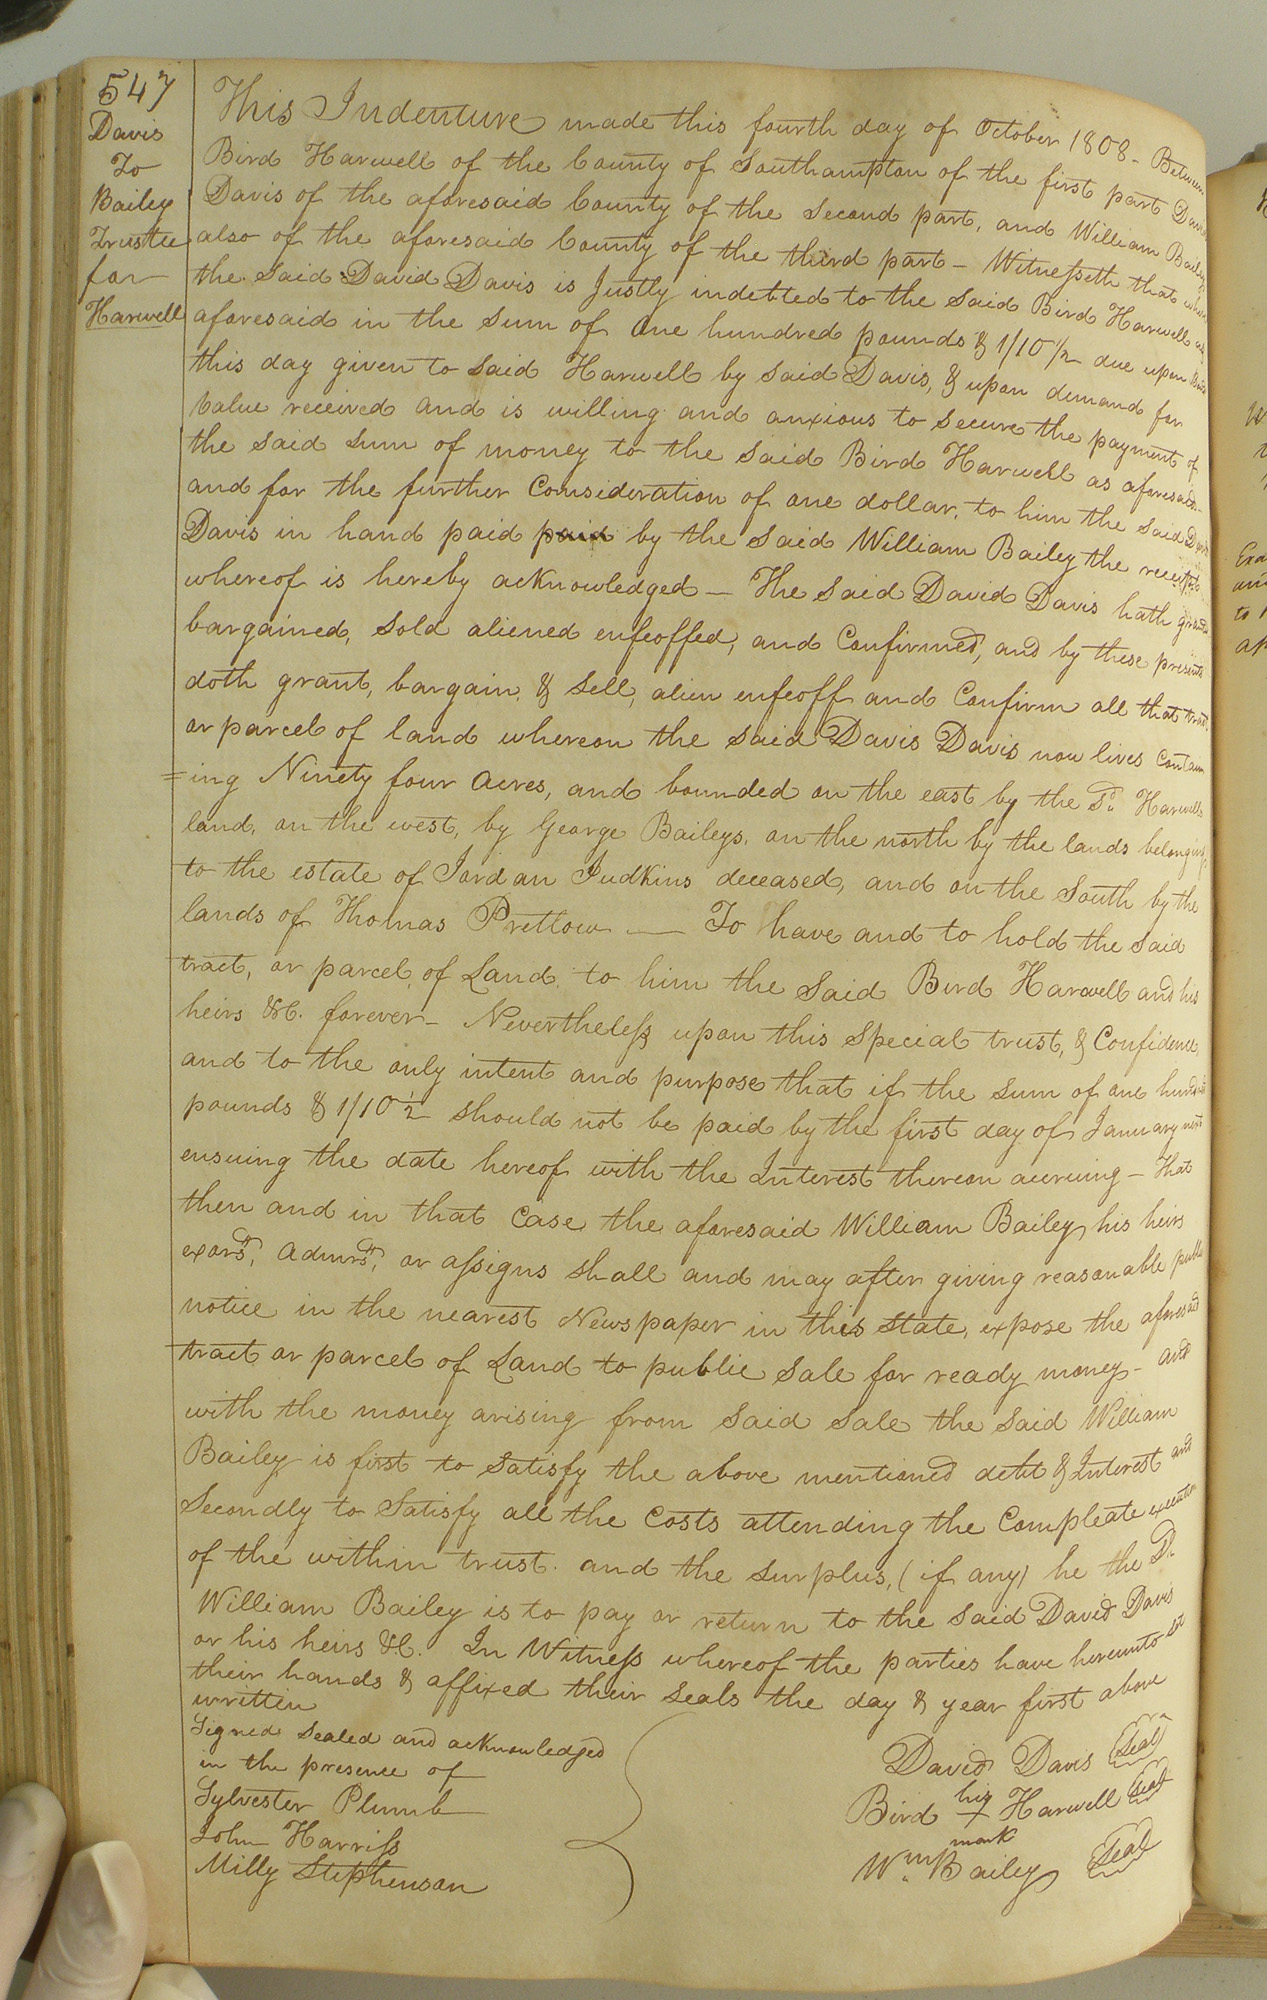 547
Davis
To
Bailey
Trustee
for
Harwell
This Indenture made this fourth day of October 1808 - Between
Bird Harwell of the County of Southampton of the first part David
Davis of the aforesaid County of the second part, and William Bailey
also of the aforesaid County of the third part - Witnesseth that
the said David Davis is Justly indebted to the said Bird Harwell
aforesaid in the sum of One hundred pounds & 1/10 1/2 due upon
this day given to said Harwell by said Davis, & upon demand for
Value received and is willing and anxious to secure the payment of
the said sum of money to the said Bird Harwell as aforesaid -
and for the further Consideration of one dollar, to him the said
Davis in hand paid paid by the said William Bailey the receipt
whereof is hereby acknowledged - The said David Davis hath
bargained, sold aliened enfeoffed, and Confirmed, and by these presents
doth grant, bargain, & sell, alien enfeoff and Confirm all that tract
or parcel of land whereon the said Davis Davis now lives Contain
=ing Ninety four acres, and bounded on the east by the Sd. Harwells
land, on the west, by George Baileys, on the north by the lands belonging
to the estate of Jordan Judkins deceased, and on the South by the
lands of Thomas Pretlow — To have and to hold the said
tract, or parcel of Land to him the said Bird Harwell and his
heirs &C. forever - Nevertheless upon this special trust, & Confidence,
and to the only intent and purpose that if the sum of one hundred
pounds & 1/10 1/2 should not be paid by the first day of January next
ensuing the date hereof with the Interest thereon accruing - That
then and in that Case the aforesaid William Bailey, his heirs
exors, admrs, or assigns shall and may after giving reasonable public
notice in the nearest Newspaper in this State, expose the aforesaid
tract or parcel of Land to public sale for ready money - and
with the money arising from said sale the said William
Bailey is first to satisfy the above mentioned debt & Interest and
Secondly to Satisfy all the Costs attending the Compleate execution
of the within trust. and the surplus, (if any) he the Sd.
William Bailey is to pay or return to the said David Davis
or his heirs &C. In Witness whereof the parties have hereunto set
their hands & affixed their seals the day & year first above
written
Signed sealed and acknowledged
in the presence of
Sylvester Plumb
John Harriss
Milly Stephenson
David Davis (Seal)
Bird his + mark Harwell (Seal)
Wm. Bailey (Seal)